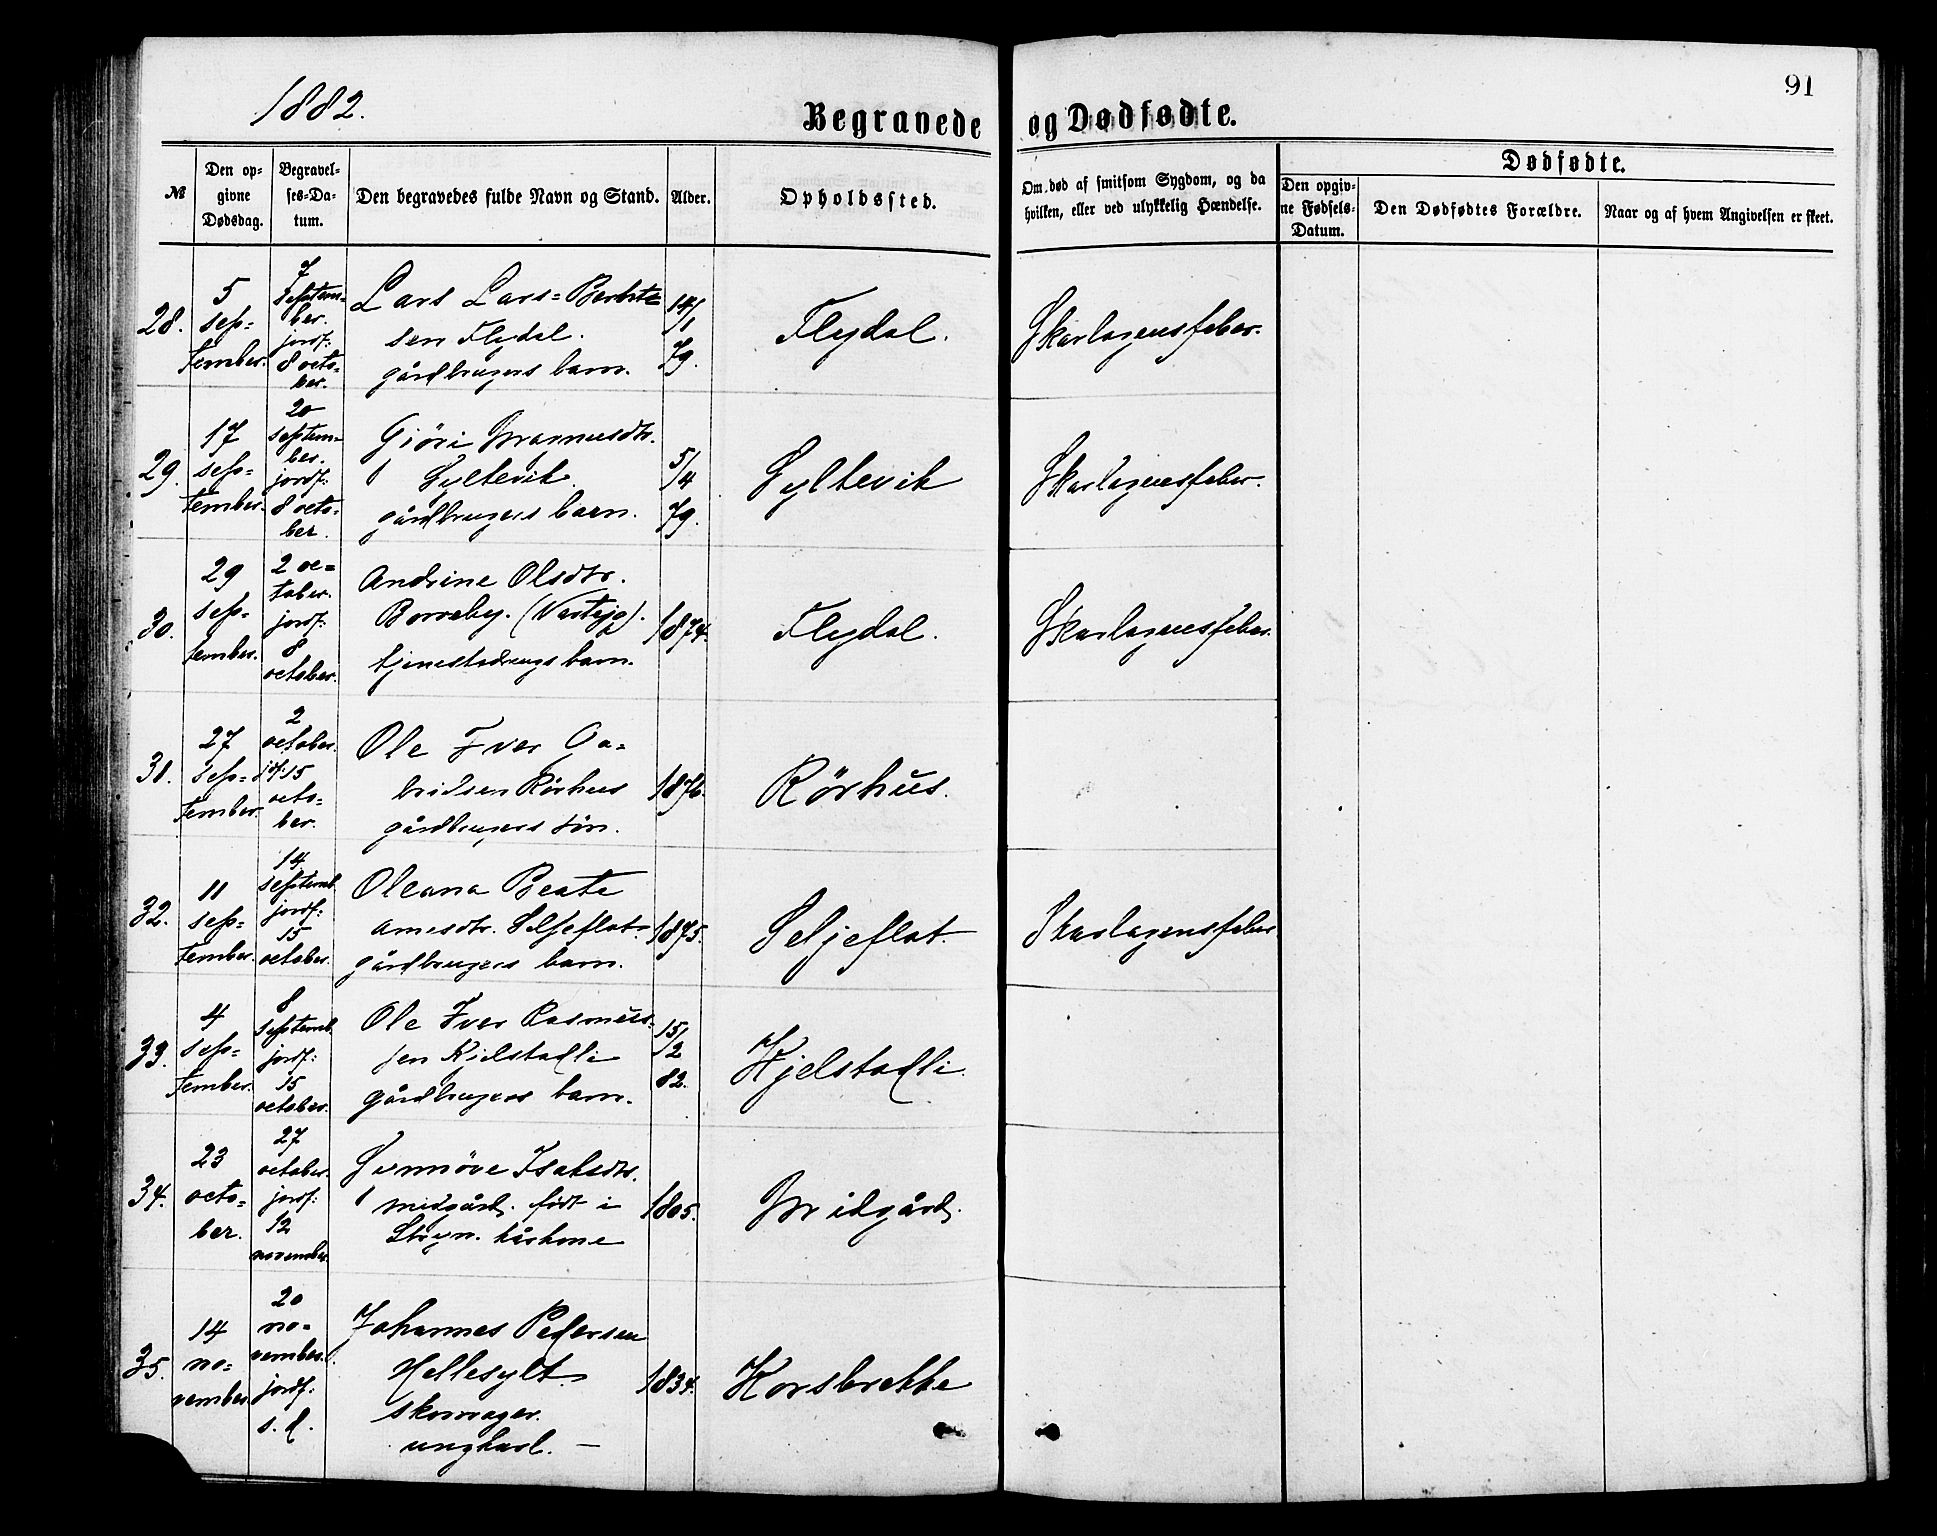 1882.
Begravede og Dødfødte.
91
№
Den op-
givne
Dødsdag.
Begravel-
ses-Da-
tum.
Den begravedes fulde Navn og Stand.
Alder.
Opholdssted.
Om død af smitsom Sygdom, og da
hvilken, eller ved ulykkelig Hændelse.
Dødfødte.
Den opgiv-
ne Fødsels-
Datum.
Den Dødfødtes Forældre.
Naar og af hvem Angivelsen er skeet.
28.
5
sep=
tember.
7
septem=
ber.
jordf:
8 octo=
ber.
Lars Lars=Berhte=
sen Flydal.
gårdbrugers barn.
14/1
79.
Flydal.
Skarlagensfeber.
29.
17
sep=
tember.
20
septem=
ber.
jordf:
8 octo=
ber.
Gjøri Magnusdtr.
Syltevik.
gårdbrugers barn.
5/4
79.
Syltevik
Skarlagensfeber.
30.
29
sep=
tember.
2 oc=
tober.
jordf:
8
october.
Andrine Olsdtr.
Borreby. (Vartejg).
tjenestedrengs barn.
1874.
Flydal.
Skarlagensfeber.
31.
27
sep=
tember.
2
october.
jf: 15
octo=
ber.
Ole Iver Ga=
brielsen Rørhus
gårdbrugers søn.
1876.
Rørhus.
32.
11
sep=
tember.
14
septemb.
jordf:
15
october.
Oleana Beate
Arnesdtr. Seljeflot.
gårdbrugers barn.
1875.
Seljeflot.
Skarlagensfeber.
33.
4
sep=
tember.
8
septemb.
jordf:
15
october.
Ole Iver Rasmus=
sen Kjelstadli
gårdbrugers barn.
15/2
82.
Kjelstadli.
34.
23
octo=
ber.
27
october.
jordf:
12
november.
Synnøve Isaksdtr.
Midgård. født i
Stryn. kårkone
1805.
Midgård.
35.
14
no=
vember
20
no=
vember.
jordf:
s. d.
Johannes Pedersen
Hellesylt.
skomager.
ungkarl. —
1834.
Korsbrekke